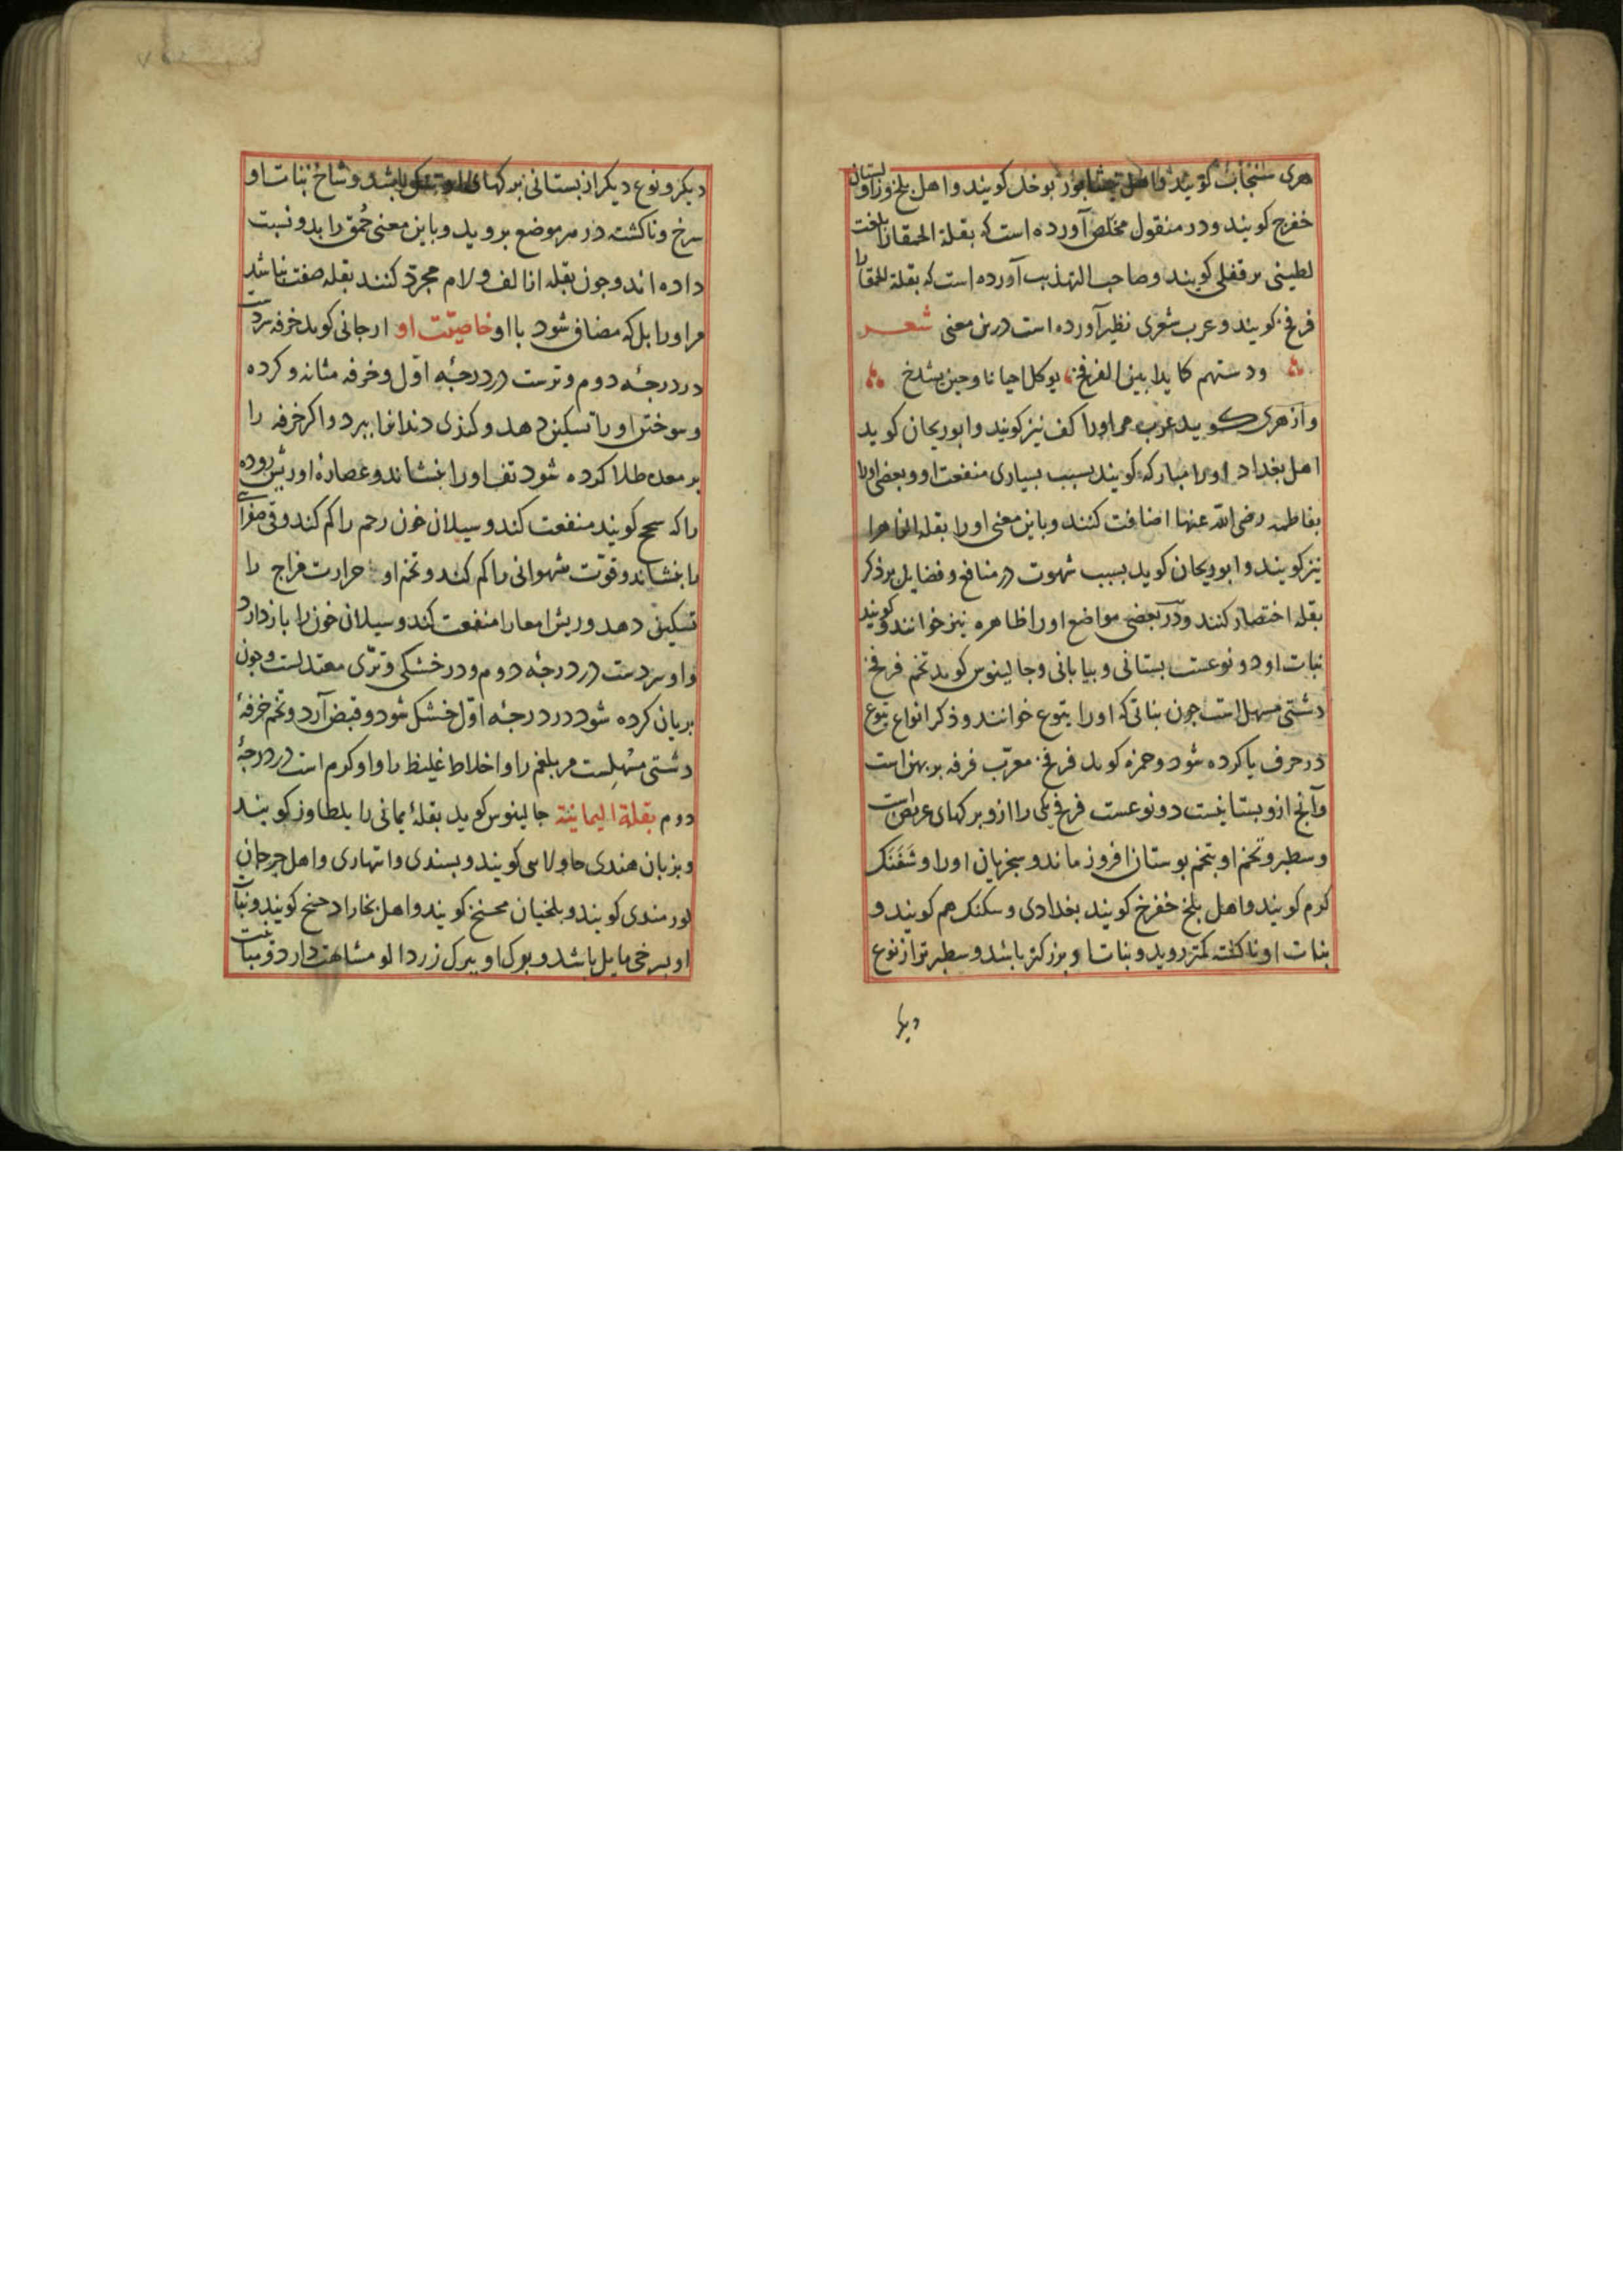 هری سنجاب کویند و اهل نیشابور بوخل کویند و اهل بلخ وزاولستان
خفرج کویند و در منقول مخلص آورده است که بقلة الحمقا را بلغت
لطینی برقفلی کویند و صاحب التهذیب آورده است که بقلة الحمقا را
فرفخ کویند و عرب شعری نظیر آورده است درین معنی شعـــر
ودستهم کما یداس الفرفخ یوکل احیانا وحین یشدخ
و ازهری کـوید عرب مر اورا کف نیز کویند و ابوریحان کوید
اهل بغداد اورا مبارکه کویند بسبب بسیاری منفعت او و بعضی اورا
بفاطمه رضی الله عنها اضافت کنند و باین معنی اورا بقلة الزاهرا
نیز کویند و ابوریحان کوید بسبب شهوت در منافع و فضایل بر ذکر
بقله اختصار کنند و در بعضی مواضع اورا ظاهره نیز خوانند و کویند
نبات او دو نوعست بستانی و بیابانی و جالینوس کوید تخم فرفخ
دشتی مسهل است جون بناتی که اورا یتوع خوانند و ذکر انواع یتوع
در حرف یا کرده شود و حمزه کوید فرفخ معرب فرفه بربهن است
و آنچ ازو بستانیست دو نوعست فرفخ یکی را ازو برکهای عریض است
و سطبر و تخم او بتخم بوستان افروز ماند و سجزیان اورا وشفنک
کرم کویند و اهل بلخ خفرخ کویند بغدادی و سکنک هم کویند و
بنات او ناکشته کمتر روید و بنات او بزرکتر باشد و سطبرتر از نوع
دیکر
دیکر و نوع دیکر از بستانی برکهای او باشد و شاخ بنات او
سرخ و ناکشته در هر موضع بروید و باین معنی حمق را بدو نسبت
داده اند و جون بقله از الف و لام مجرد کنند بقله صفت نباشد
مر اورا بل که مضاف شود با او خاصیت او ارجانی کوید خرفه سردست
در درجهٔ دوم و ترست در درجهٔ اول و خرفه مثانه و کرده
و سوختن اورا تسکین دهد و کندی دندانها ببرد و اکر خرفه را
بر معده طلا کرده شود تف اورا بنشاند و عصارهٔ او ریش روده
را که سحج کویند منفعت کند و سیلان خون رحم را کم کند و قی صفرائی
را بنشاند و قوت شهوانی را کم کند و تخم او حرارت مزاج را
تسکین دهد و ریش امعا را منفعت کند و سیلان خون را باز دارد
و او سردست در درجهٔ دوم و در خشکی و تری معتدلست و جون
بریان کرده شود در درجهٔ اول خشک شود و قبض آرد و تخم خرفهٔ
دشتی مسهلست مر بلغم را و اخلاط غلیظ را و او کرم است در درجهٔ
دوم بقلة الیمانیة جالینوس کوید بقلهٔ یمانی را بلطاوز کویند
و بزبان هندی حاولاسی کویند و بسندی وانهاری و اهل جرجان
لورمندی کویند و بلخیان محسنخ کویند و اهل بخارا دحنج کویند و نبات
او بسرخی مایل باشد و برک او ببرک زردالو مشابهت دارد و نباتیست